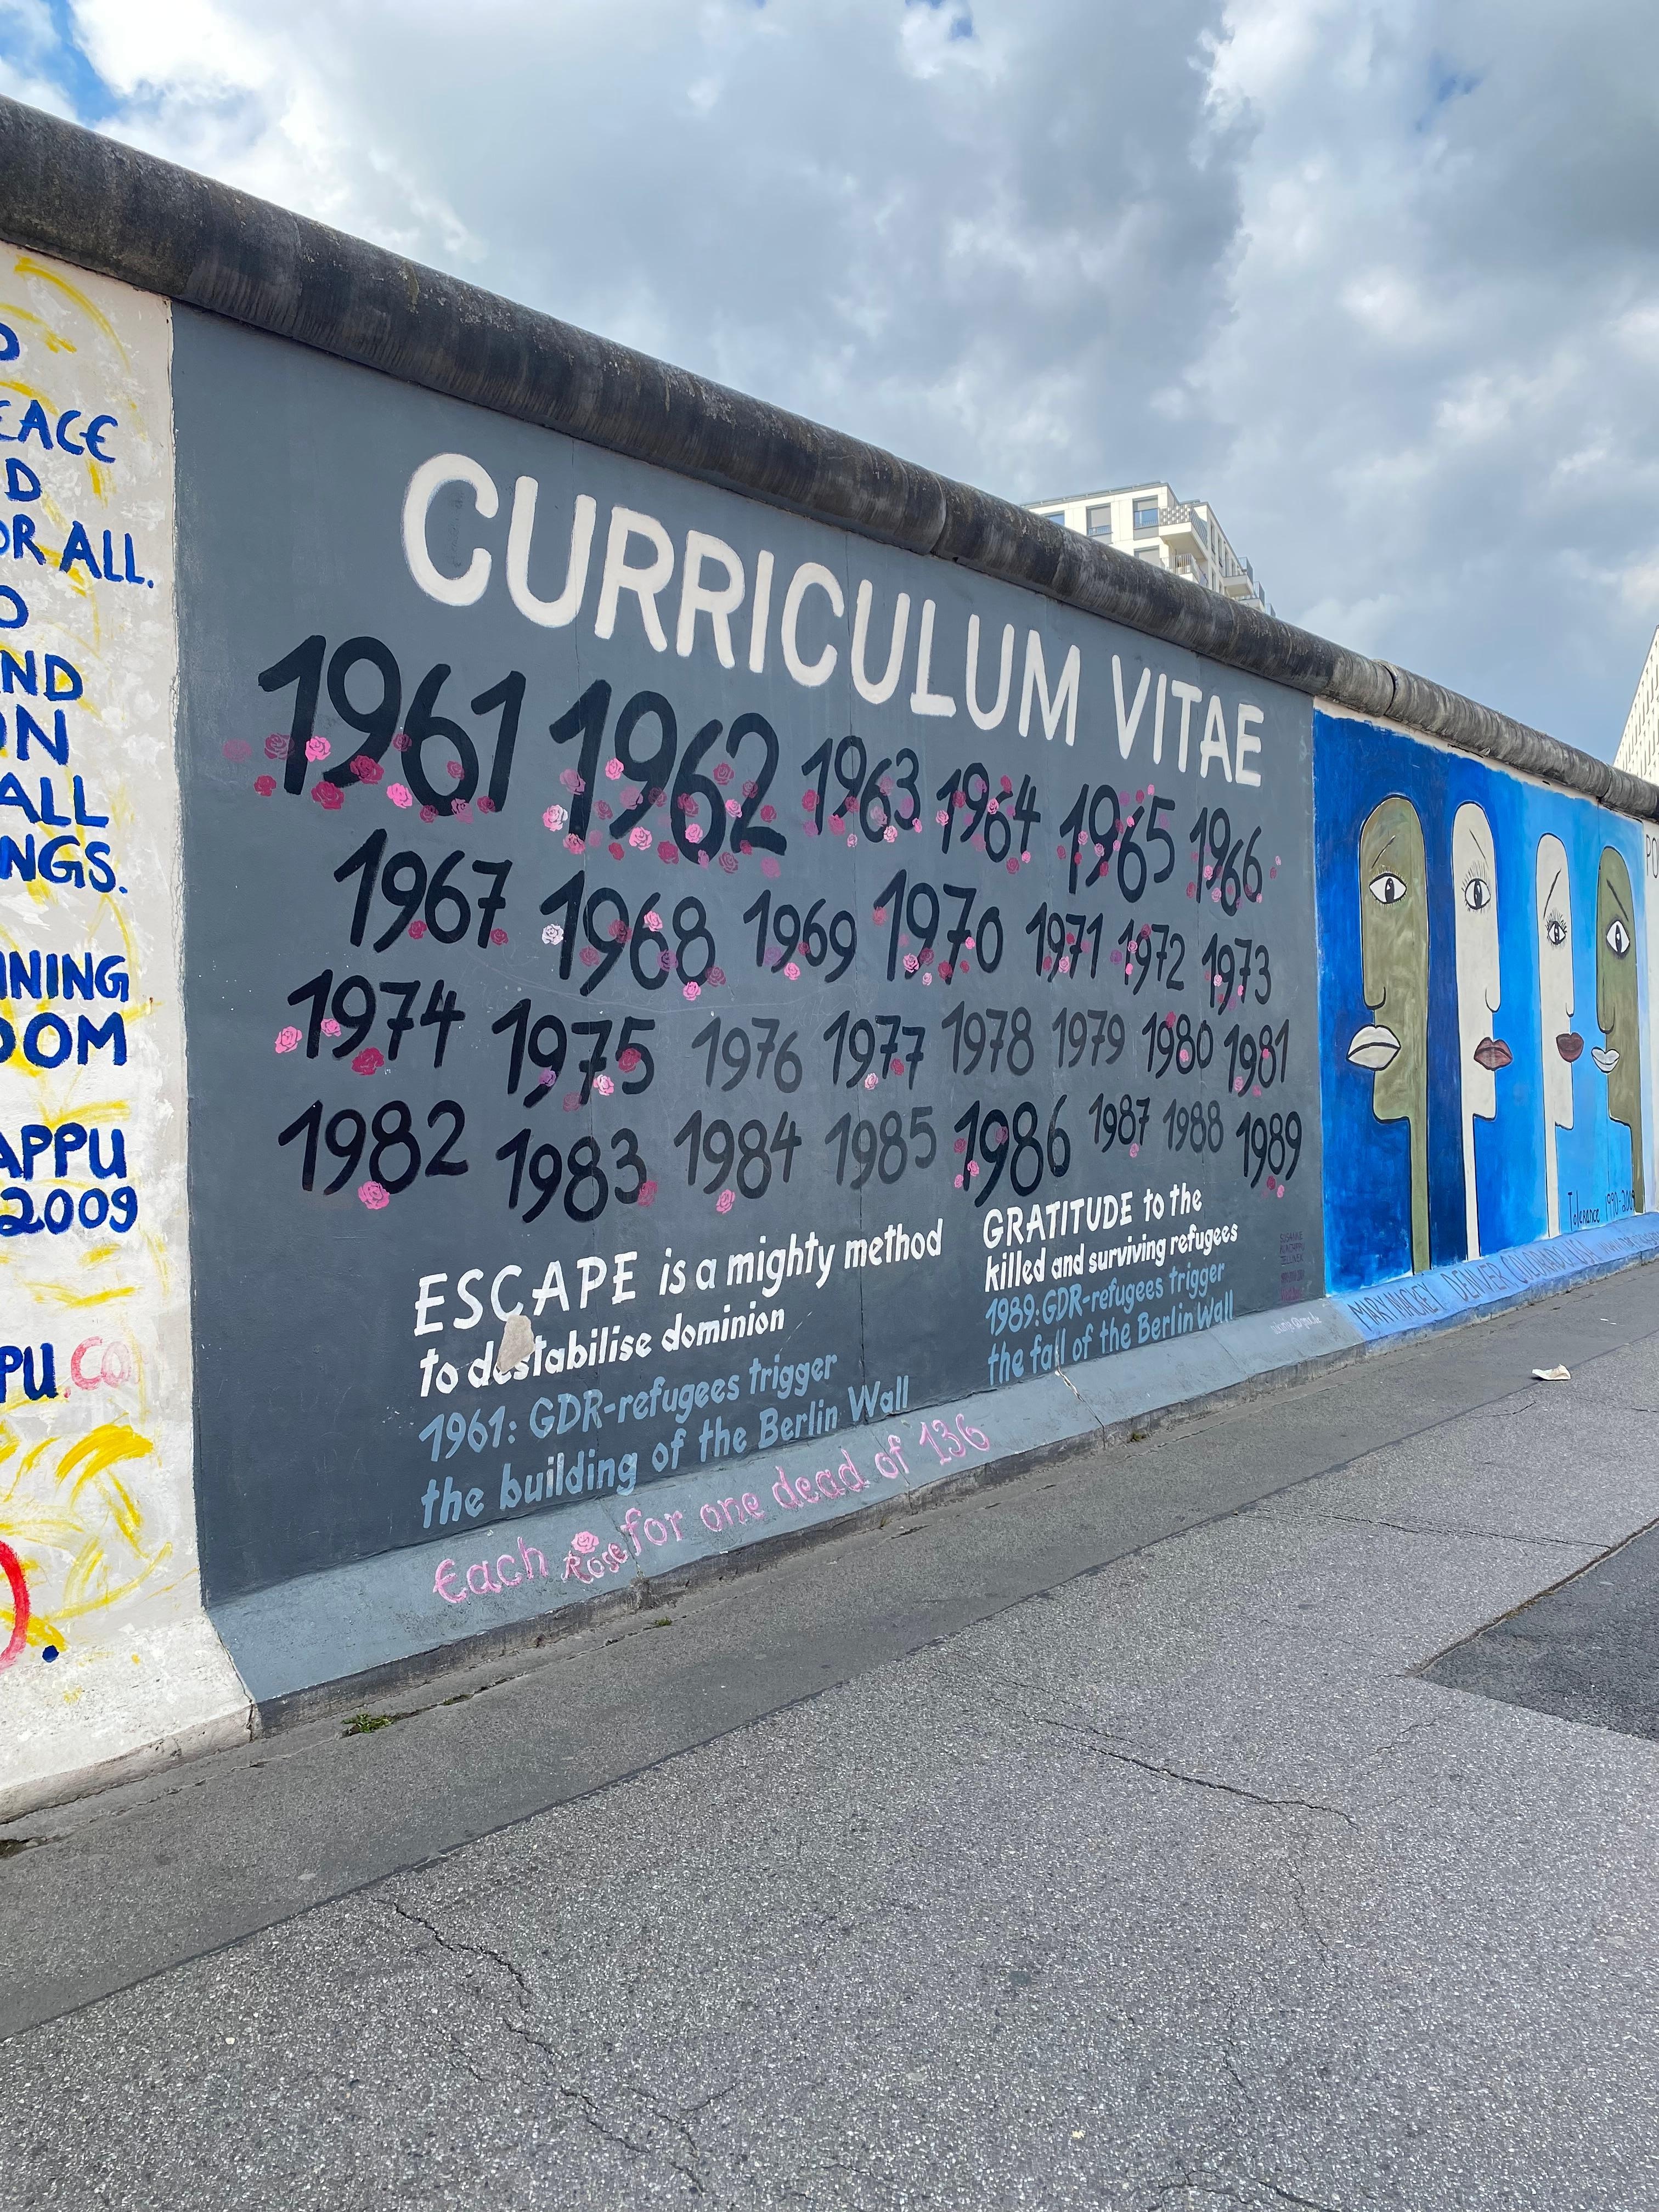 EACE
D
OR ALL.
O
ND
ON
ALL
NGS.
NING
DOM
APPU
2009
PU.CO
CURRICULUM VITAE
1961 1962 1963 1964 1965 1966
1967 1968 1969 1970 1971 1972 1973
1974 1975 1976 1977 1978 1979 1980 1981
1982 1983 1984 1985 1986 1987 1988 1989
ESCAPE is a mighty method
to destabilise dominion
1961: GDR-refugees trigger
the building of the Berlin Wall
GRATITUDE to the
killed and surviving refugees
1989: GDR-refugees trigger
the fall of the Berlin Wall
Each Rose for one dead of 136
Tolerance
MARY MACKEY DENVER COLORADO
PO